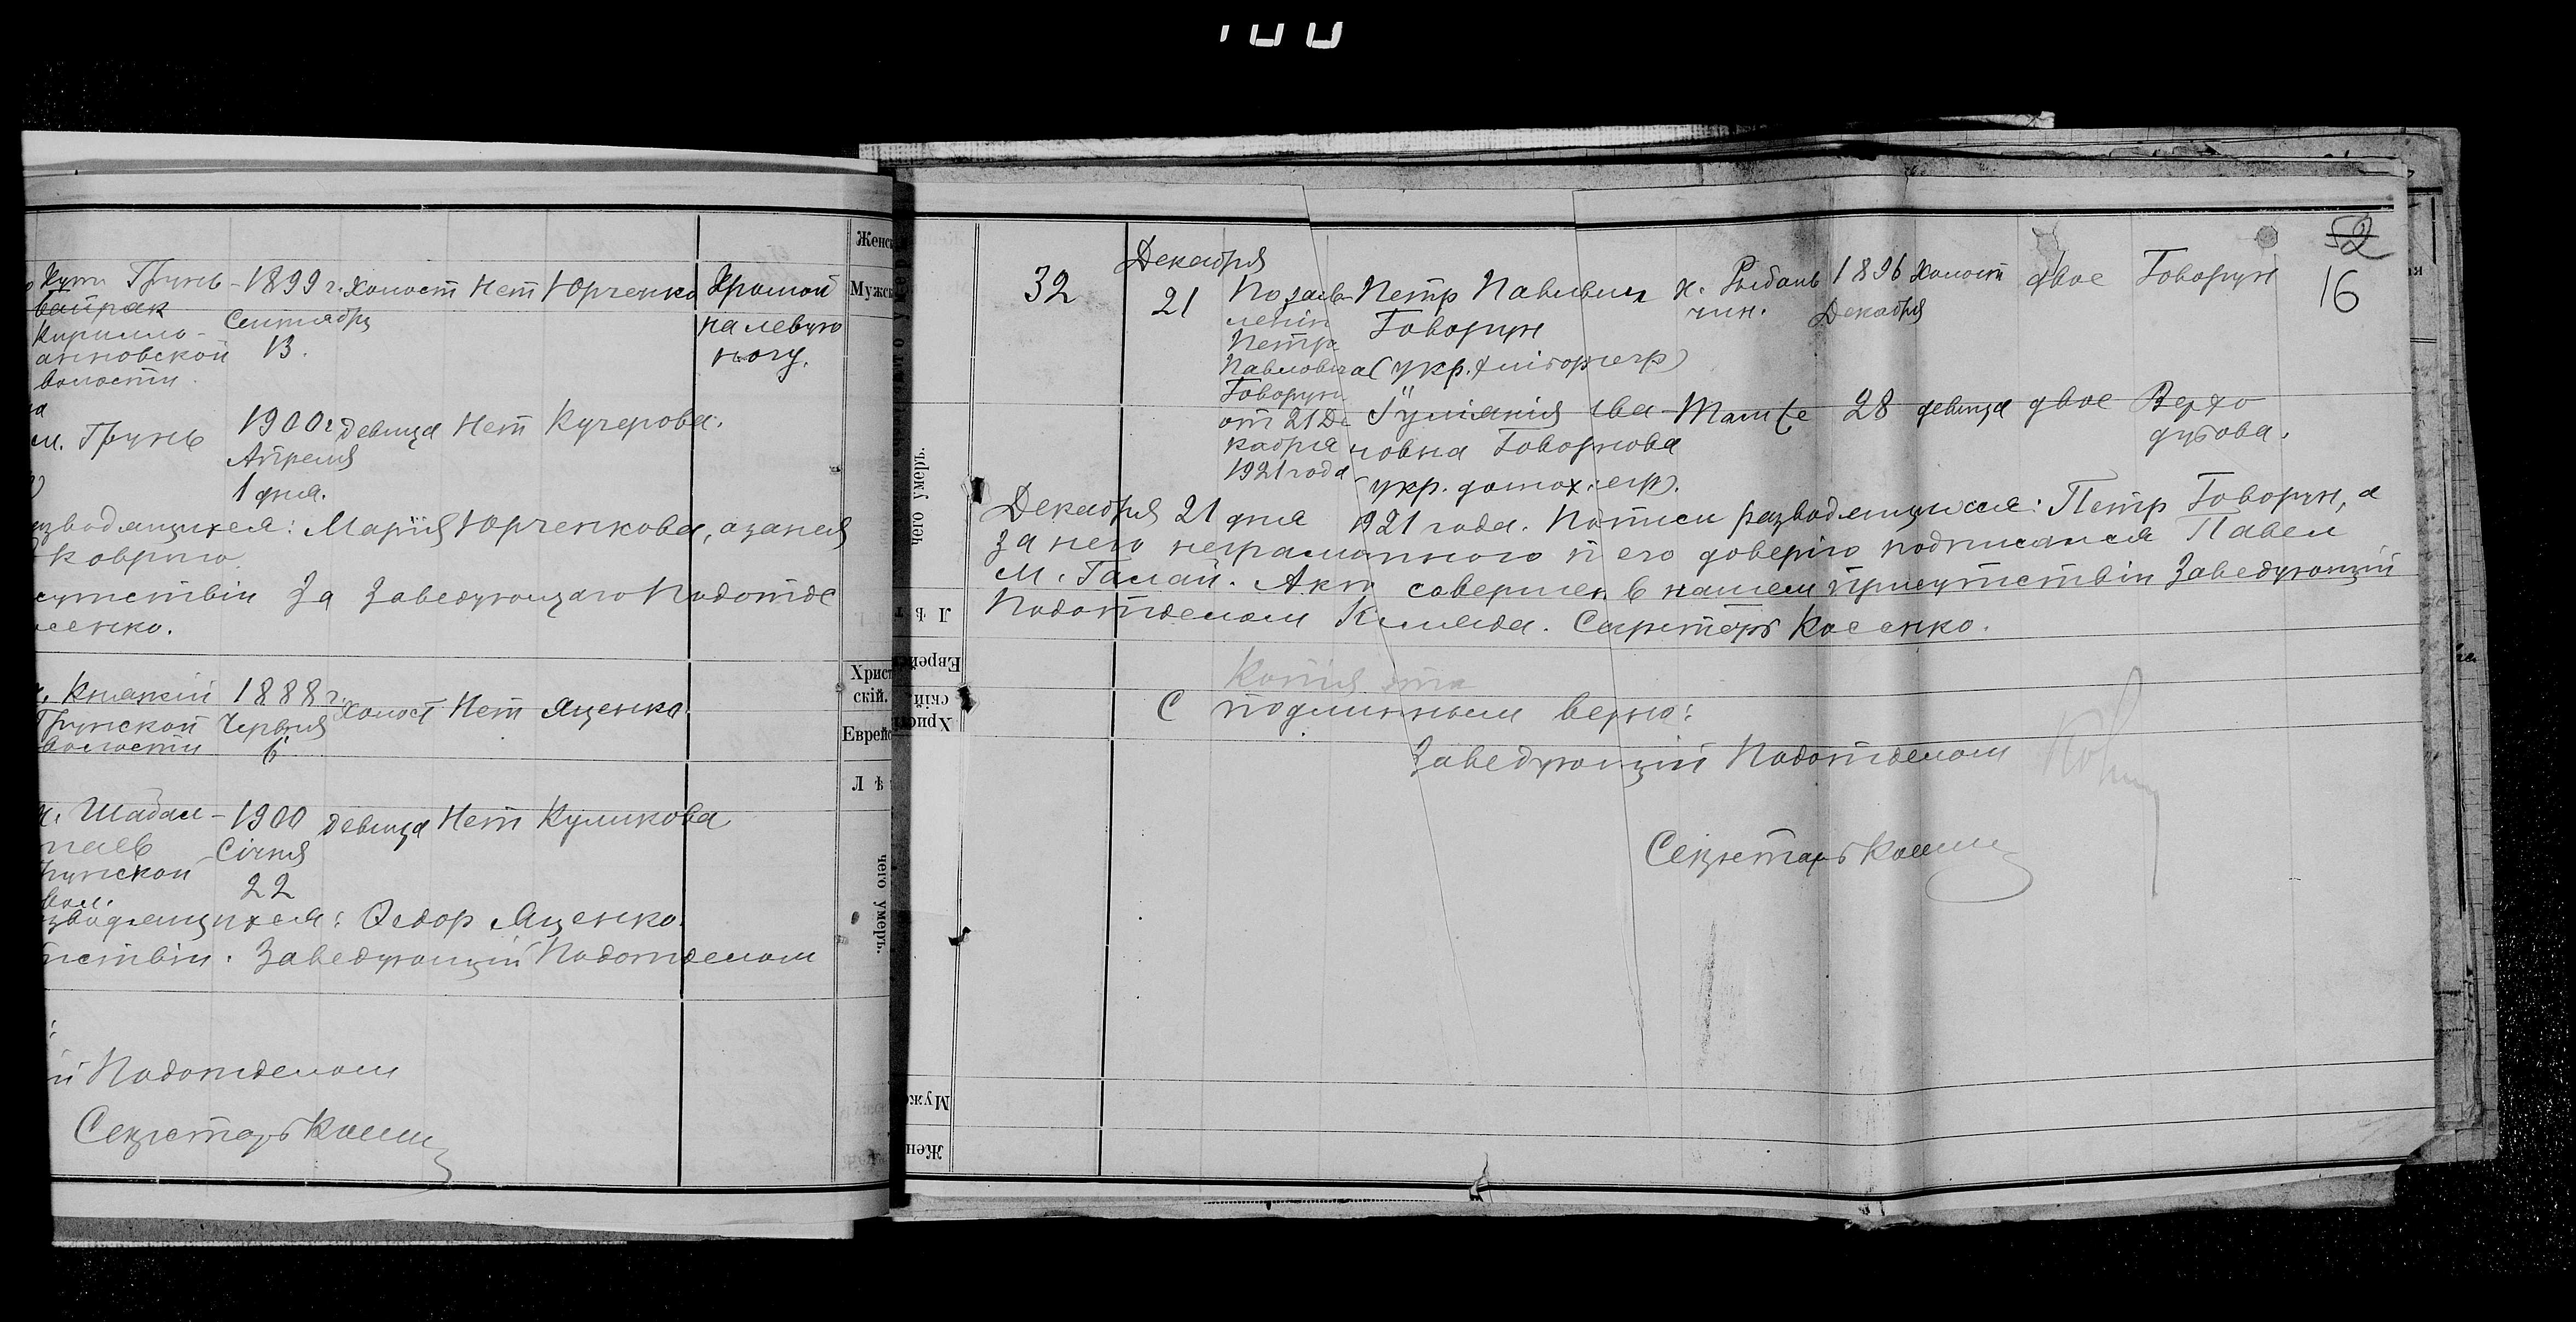 Хут. Грунь- 1899 г. холост Нет Юрченко Хромой
байрак Сентября на левую
Кирилло- 13. ногу.
анновской
волости
м. Грунь 1900 г девица Нет Кучерова.
Апреля
1 дня.
зводящихся: Мария Юрченкова, а за нея
Коврыго
сутствіи За Заведующаго Подотде
менко.
х. Княжій 1888 г. холост Нет Яценко.
Грунской Червня
волости 6
х. Шабал- 1900 девица Нет Куликова
Січня
Грунской 22
вол.
зводящихся: Федор Яценко.
тствіи. Заведующій Подотделом
й Подотделом
Секретарь
Женс
Мужс
Христ
скій.
Еврейс
Л ѣ
чего умеръ.
чего умеръ.
Л ѣ т
Еврейс
скій.
Христ
Мужс
Жен
52
16
32 Декабря
21 По заяв- Петр Павлович х. Рыбаль 1896 Холост двое Говорун
леніи Говорун чин. Декабря
Петра
Павловича (укр. хлібороб)
Говорун
от 21 Де Ива- 28 девица двое Верхо
кабря новна дубова.
1921 года укр.
Декабря 21 дня 1921 года. Подписи разводящихся: Петр Говорун, а
за него неграмотного и его доверію подписался Павел
М. Галай. Акт совершен в нашем присутствіи Заведующій
Подотделом Секретарь Косенко.
Копия
С подлинным верно:
Заведующій Подотделом
Секретарь